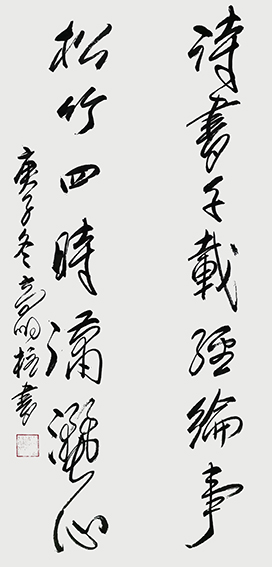 詩書千載經綸事
松竹四時瀟灑心
庚子冬明書